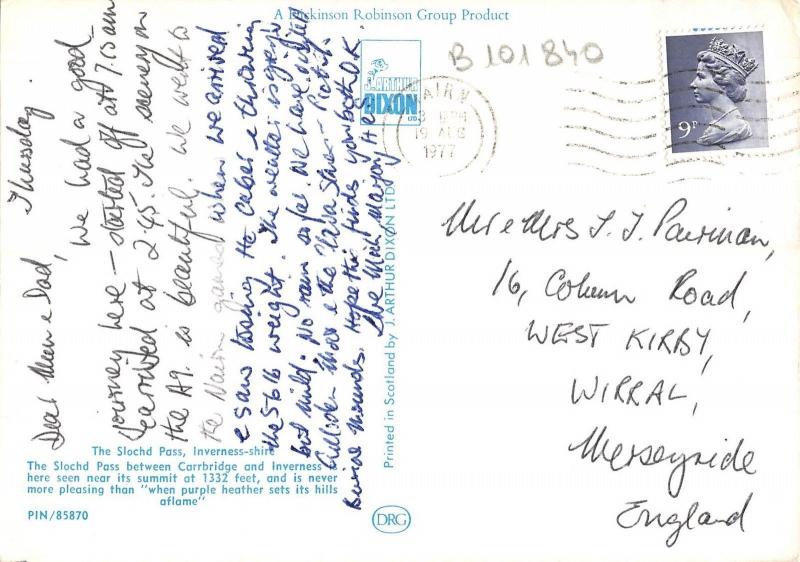 A Dickinson Robinson Group Product
B 101840
J. ARTHUR
DIXON
LTD
NAIRN
19 AUG
1977
9P
Thursday
Dear Mum & Dad,
We had a good
journey here – started off at 7.15 am
& arrived at 2.45. The scenery on
the A9. is beautiful. We went to
the Nairn games when we arrived
& saw tossing the Caber & throwing
the 56 lb weight. The weather is grey
but mild. No rain so far. We have visited
Culloden Moor & the Clava Stones – Pictish
Burial Mounds. Hope this finds you both OK.
Printed in Scotland by J. ARTHUR DIXON LTD
Mr & Mrs J. J. Pairman,
16, Column Road,
WEST KIRBY,
WIRRAL,
Merseyside
England
The Slochd Pass, Inverness-shire
The Slochd Pass between Carrbridge and Inverness
here seen near its summit at 1332 feet, and is never
more pleasing than "when purple heather sets its hills
aflame"
PIN/85870
DRG